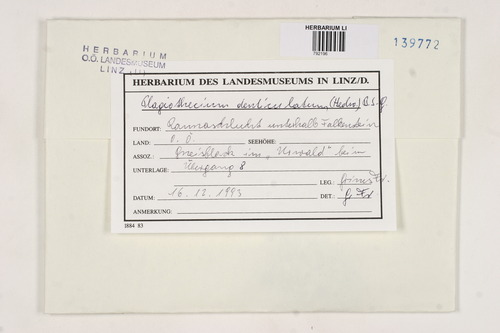 HERBARIUM LI
792196
139772
HERBARIUM
O.Ö. LANDESMUSEUM
LINZ
HERBARIUM DES LANDESMUSEUMS IN LINZ/D.
Plagiothecium denticulatum (Hedw.) B.S.G.
FUNDORT: Rannaschlucht unterhalb Falkenstein
LAND: O.Ö SEEHÖHE:
ASSOZ.: Gneisblock im "Urwald" beim
UNTERLAGE: Übergang 8
LEG.:
DATUM: 16.12.1993 DET.:
ANMERKUNG:
I884 83